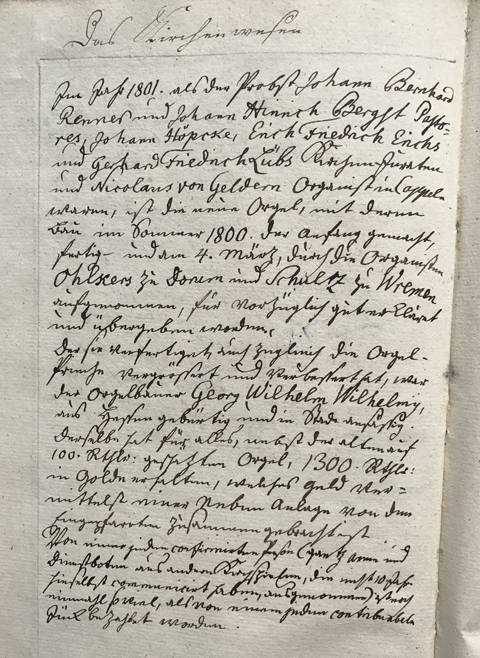 Das Kirchenwesen
Im Jahr 1801. als der Probst Johann Bernhard
Rennes und Johann Hinrich Berghst Pasto-
res, Johann Höpcke, Erich Friedrich Erichs
und Gerhard Friedrich Lübs Kirchen-Juraten
und Nicolaus von Geldern Organist in Cappeln
waren, ist die neue Orgel, mit deren
Bau im Sommer 1800. der Anfang gemacht,
fertig- und am 4. Märtz, durch die Organisten
Ohlkers zu Dorum und Schultz zu Wremen
aufgenommen, für vorzüglich gut erkläret
und übergeben worden.
Der sie verfertiget, auch zugleich die Orgel-
Prieche vergrössert und verbessert hat, war
der Orgelbauer Georg Wilhelm Wilhelmy,
aus Hessen gebürtig und in Stade ansässig.
Derselbe hat für alles, nebst der alten auf
100. Rthlr: geschätzten Orgel, 1300. Rthlr:
in Golde erhalten, welches Geld ver-
mittelst einer Neben Anlage von den
Eingepfarrten zusammengebracht ist.
Von einer jeden confirmirten Person (gantz arme und
Dienstboten aus andern Kirchspielen, die nicht 10 Jahr
hieselbst communicirt haben, ausgenommen) ist noch
einmahl so viel, als von einem jeden contribuablen
Stück bezahlet worden.